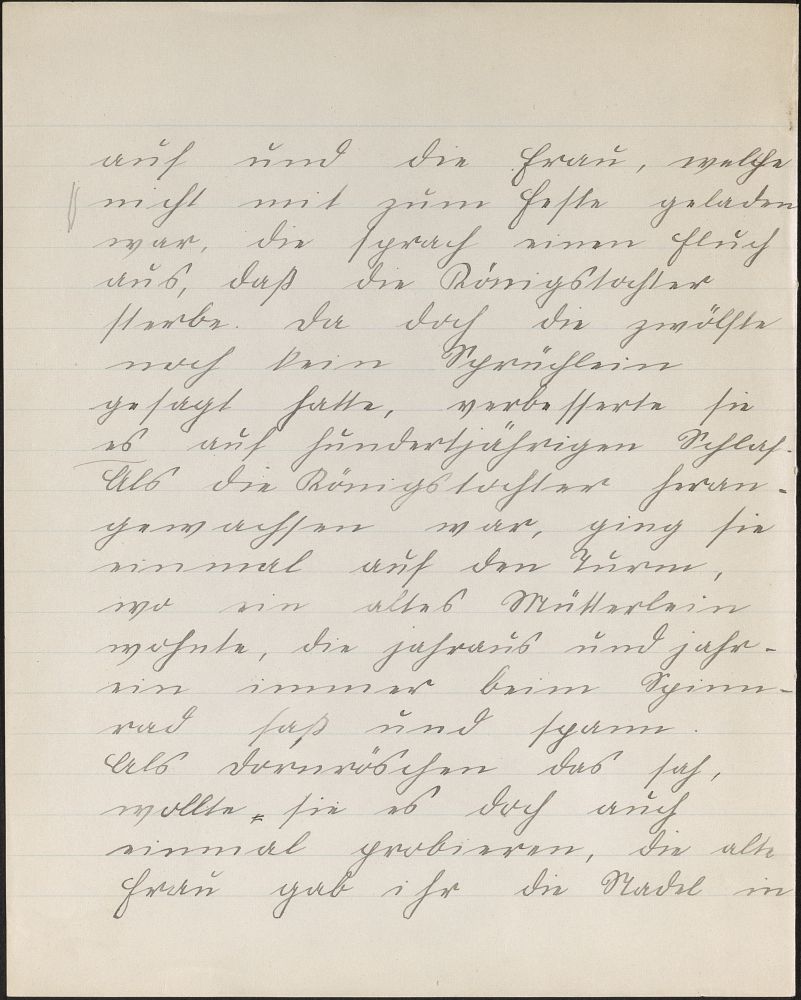 auf und die Frau, welche
nicht mit zum Feste geladen
war, die sprach einen Fluch
aus, daß die Königstochter
sterbe. Da doch die zwölfte
noch kein Sprüchlein
gesagt hatte, verbesserte sie
es auf hundertjährigen Schlaf.
Als die Königstochter heran-
gewachsen war, ging sie
einmal auf den Turm,
wo ein altes Mütterlein
wohnte, die jahraus und jahr-
ein immer beim Spinn-
rad saß und spann.
Als Dornröschen das sah,
wollte sie es doch auch
einmal probieren, die alte
Frau gab ihr die Nadel in